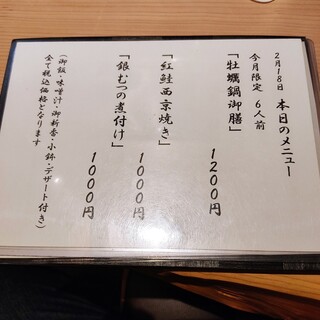 2月18日 本日のメニュー
今月限定 6人前
「牡蠣鍋御膳」
1200円
「紅鮭西京焼き」
1000円
「銀むつの煮付け」
1000円
(御飯・味噌汁・御新香・小鉢・デザート付き)
全て税込価格となります